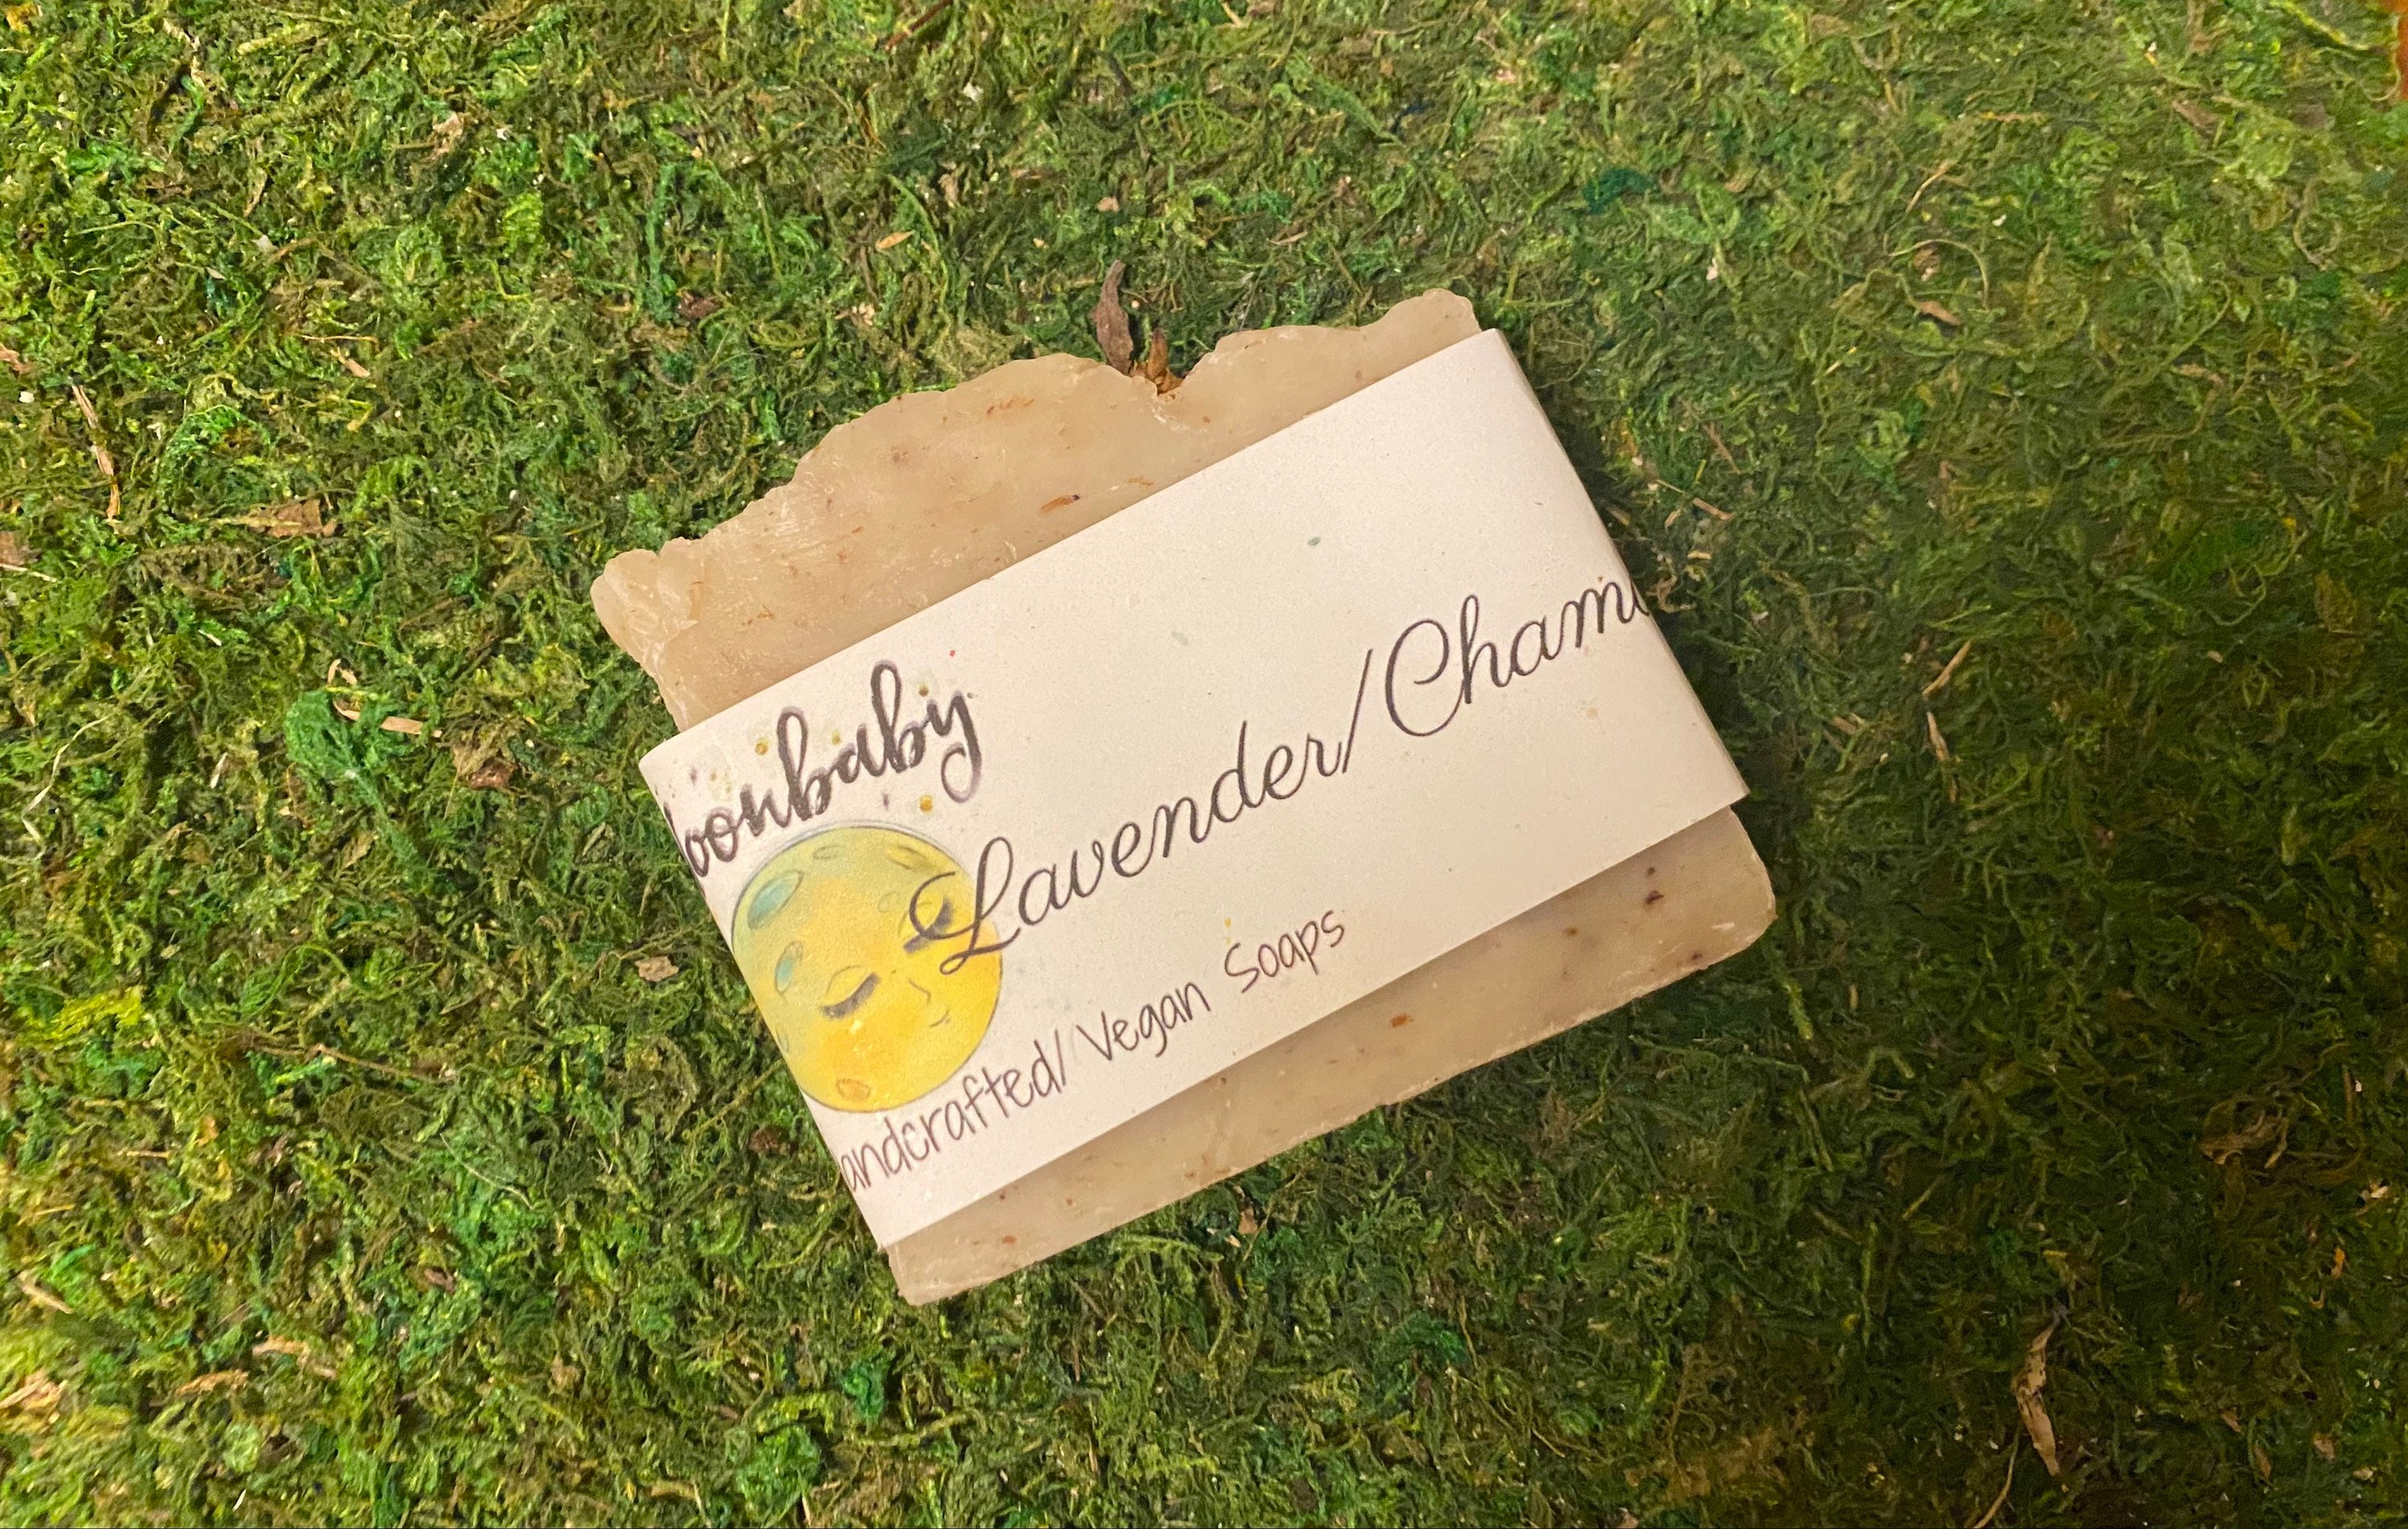 oonbaby
Lavender/Cham
andcrafted/ Vegan Soaps